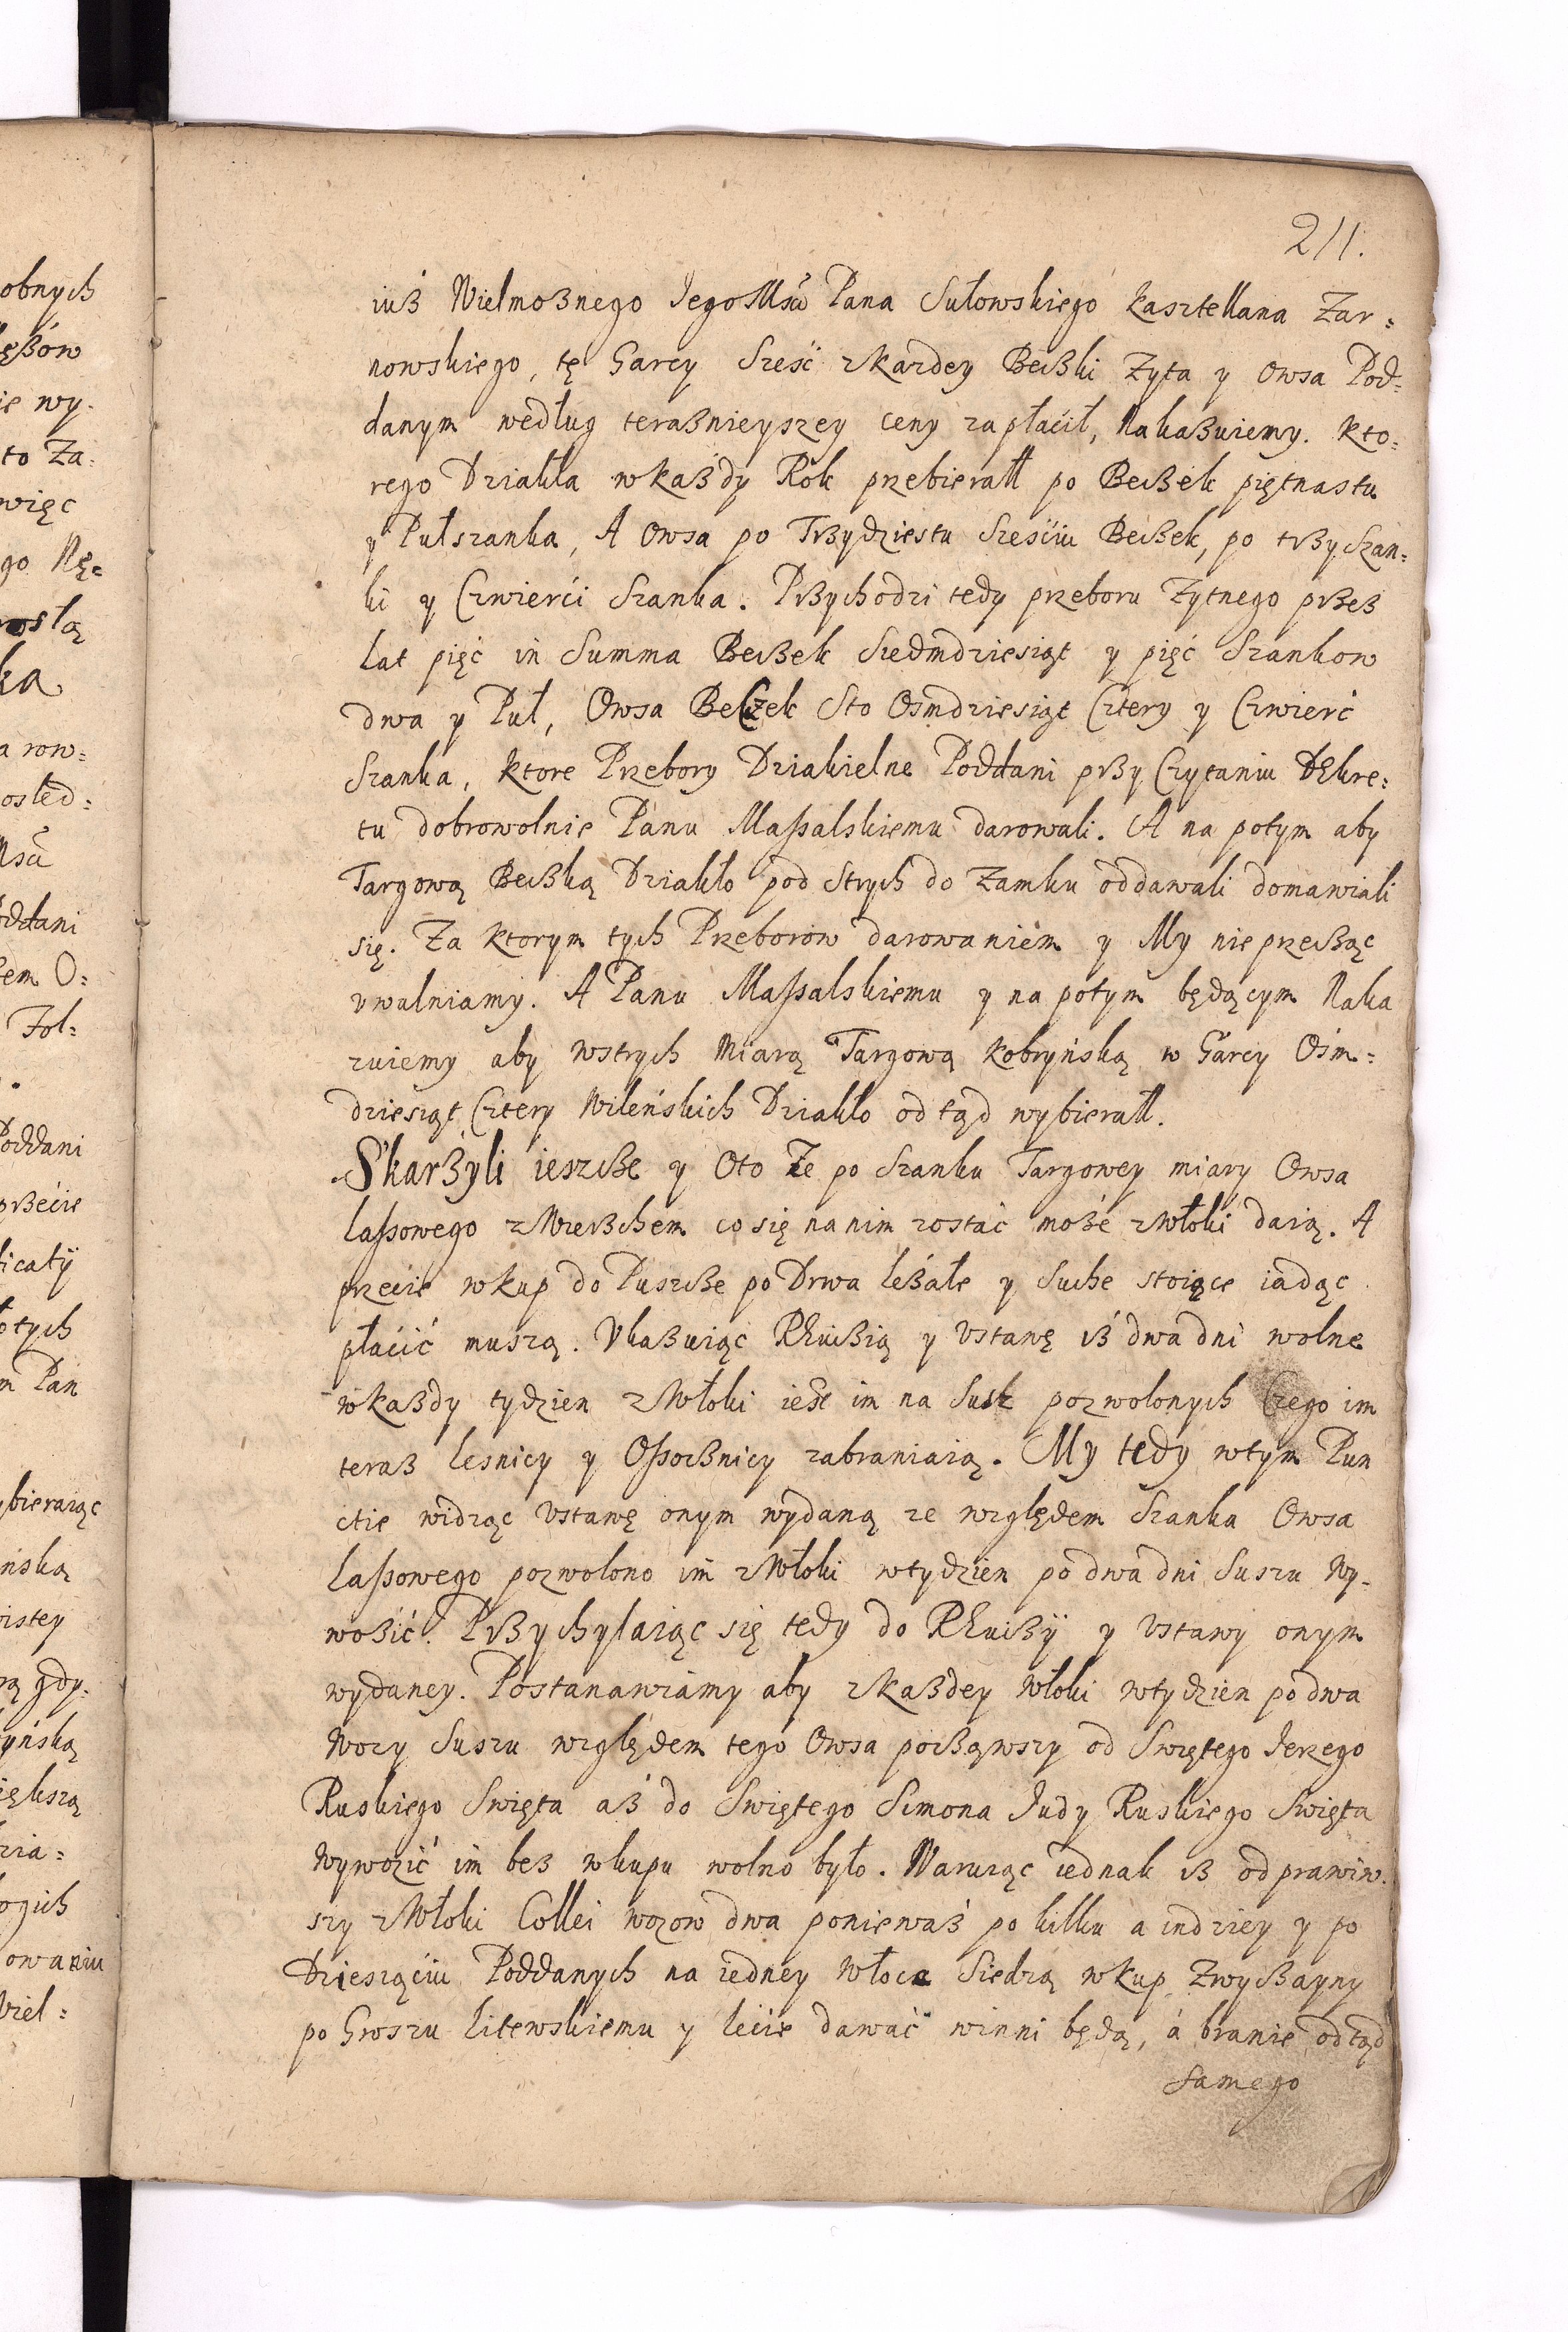 211.
obnych
iuß Wielmoßnego JegoMści Pana Sułowskiego Kasztellana Zar=
ęßow
nowskiego, tę Garcy Sześć z Kazdey Beßki Zyta y Owsa Pod=
ie wy=
danym według teraßnieyszey ceny zapłacił, Nakaßuiemy. Kto=
to Za=
rego Dziakła w Kaßdy Rok przebierałł po Beßek piętnastu
więc
y Puł szanka, A Owsa po Trßydziestu Sześciu Beßek, po trßy Szan=
go Nę=
ki y Czwierći Szanka. Prßychodzi tedy przeboru Zytnego prßeß
rosłą
Lat pięć in Summa Beßek Siedmdziesiąt y pięć Szankow
ka
dwa y Puł, Owsa Beczek Sto Osmdziesiąt Cztery y Czwierć
a row=
Szanka, Ktore Przebory Dziakielne Poddani prßy Czytaniu Dekre=
osled=
tu dobrowolnie Panu Massalskiemu darowali. A na potym aby
Mści
Targową Beßką Dziakło pod Strych do Zamku oddawali domawiali
oddani
się. Za ktorym tych Przeborow darowaniem y My nie przeßąc
em O=
uwalniamy. A Panu Massalskiemu y na potym będącym Naka
Fol=
zuiemy aby wstrych Miarą Targową Kobryńską w Garcy Osm=
dziesiąt Cztery Wileńskich Dziakło od tąd wybierałł.
Poddani
Skarßyli ieszcße y Oto Ze po Szanku Targowey miary Owsa
przećie
lassowego z Wierßchem co się na nim zostać moße z Włoki daią. A
licatÿ
przecie wkup do Puszcße po Drwa leßałe y Suche stoiące iadąc
otych
płaćić muszą. Ukaßuiąc Rewißią y Ustawę iß dwa dni wolne
m Pan
w Kaßdy tydzien z Włoki iest im na Susz pozwolonych Czego im
teraß lesnicy y Ossoßnicy zabraniaią. My tedy w tym Pun
ctie widząc Ustawę onym wydaną ze względem Szanka Owsa
ybieraiąc
lassowego pozwolono im z Włoki w tydzien po dwa dni Suszu Wy=
ińską
woßić. Prßychylaiąc się tedy do Rewißÿ y Ustawy onym
istey
wydaney. Postanawiamy aby z Kaßdey Włoki w tydzien po dwa
rą gdy=
Wozy Suszu względem tego Owsa poßąwszy od Swiętego Jerzego
yńską
Ruskiego Swięta aß do Swiętego Simona Judy Ruskiego Swięta
iększą
Wywozić im beß wkupu wolno było. Waruiąc iednak iß odprawiw=
zia=
szy z Włoki Collei wozow dwa poniewaß po kilku a indziey y po
ogich
Dziesiąćiu Poddanych na iedney Włoce Siedzą wkup Zwyßayny
owaniu
po Groszu litewskiemu y lećie dawać winni będą, a branie odtąd
Wiel=
Samego